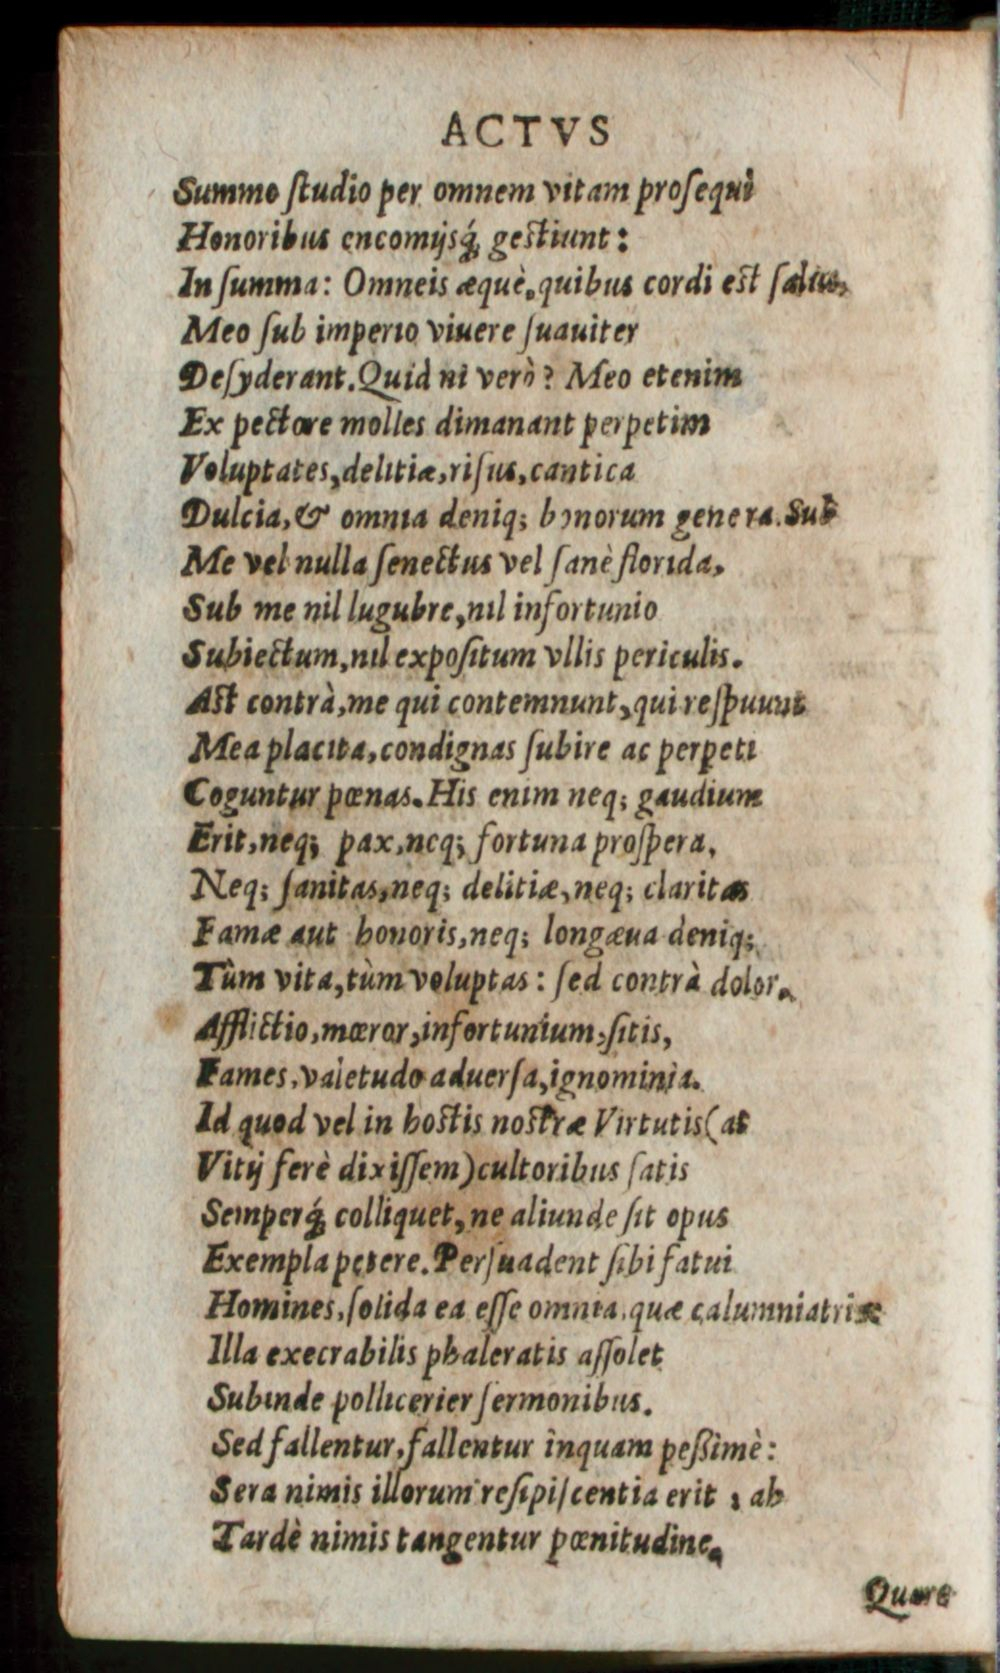 ACTVS
Summo ſtudio per omnem vitam proſequi
Honoribus encomijsq́; geſtiunt:
In ſumma: Omneis æquè, quibus cordi eſt ſalus,
Meo ſub imperio viuere ſuauiter
Deſyderant. Quid ni verò? Meo etenim
Ex pectore molles dimanant perpetim
Voluptates, delitiæ, riſus, cantica
Dulcia, & omnia deniq; bonorum genera. Sub
Me vel nulla ſenectus vel ſanè florida,
Sub me nil lugubre, nil infortunio
Subiectum, nil expoſitum vllis periculis.
Aſt contrà, me qui contemnunt, qui reſpuunt
Mea placita, condignas ſubire ac perpeti
Coguntur pœnas. His enim neq; gaudium
Erit, neq; pax, neq; fortuna proſpera,
Neq; ſanitas, neq; delitiæ, neq; claritas
Famæ aut honoris, neq; longæua deniq;
Tùm vita, tùm voluptas: ſed contrà dolor,
Afflictio, mœror, infortunium, ſitis,
Fames, valetudo aduerſa, ignominia.
Id quod vel in hoſtis noſtræ Virtutis (at
Vitij ferè dixiſſem) cultoribus ſatis
Semperq́; colliquet, ne aliunde ſit opus
Exempla petere. Perſuadent ſibi fatui
Homines, ſolida ea eſſe omnia, quæ calumniatrix
Illa execrabilis phaleratis aſſolet
Subinde pollicerier ſermonibus.
Sed fallentur, fallentur inquam peßimè:
Sera nimis illorum reſipiſcentia erit, ah
Tardè nimis tangentur pœnitudine.
Quare